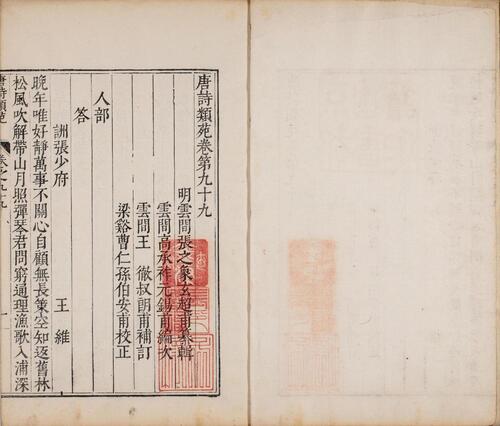 唐詩類苑卷第九十九
明雲間張之象玄超甫纂輯
雲間高承祚元錫甫編次
雲間王徹叔朗甫補訂
梁谿曹仁孫伯安甫校正
人部
答
詶張少府
王維
晚年唯好靜萬事不關心自顧無長策空知返舊林
松風吹解帶山月照彈琴君問窮通理漁歌入浦深
唐詩類苑
卷之九十九
一